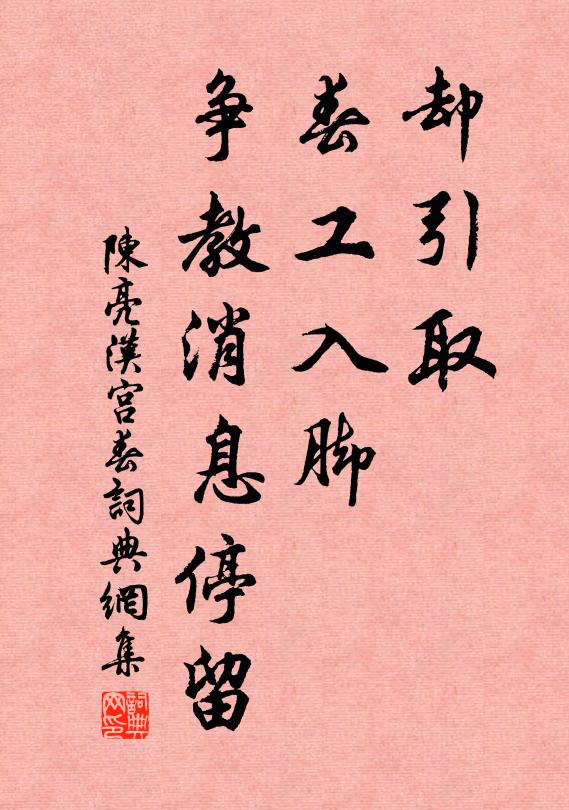 却引取
春工入脚
争教消息停留
陳亮漢宮春詞典網集
詞典网印